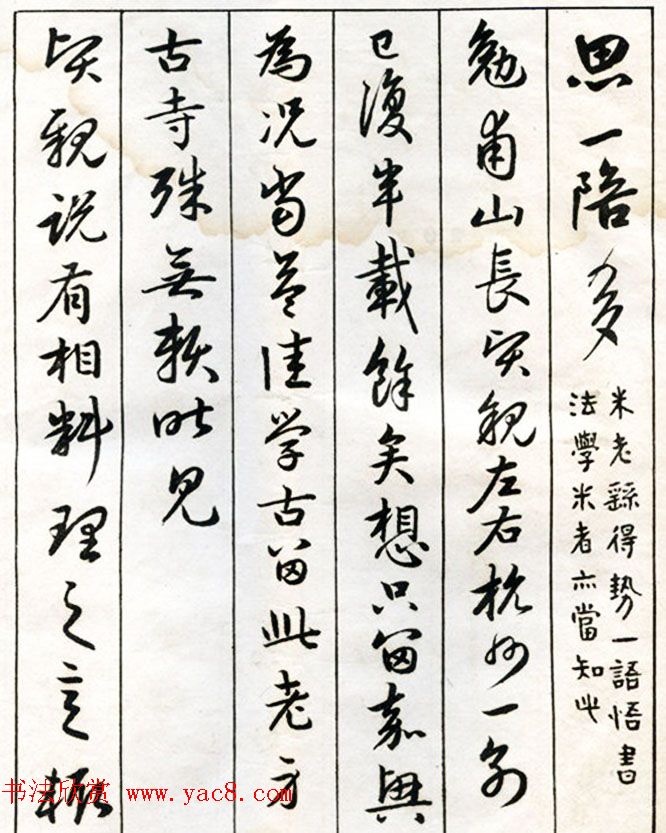 思一陪多
米老繇得势一語悟書
法學米者亦當知此
勉甫山長契親左右杭州一別
已復半載餘矣想只留嘉興
為况當益佳学古留此老方
古寺殊無聊昨見
契親説有相料理之意輒
书法欣赏 www.yac8.com